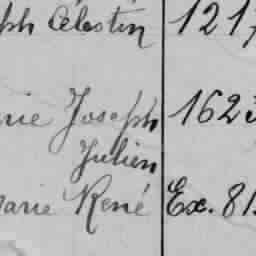 ph Célestin 1217
rie Joseph 1623
Julien
Marie René Ex. 81